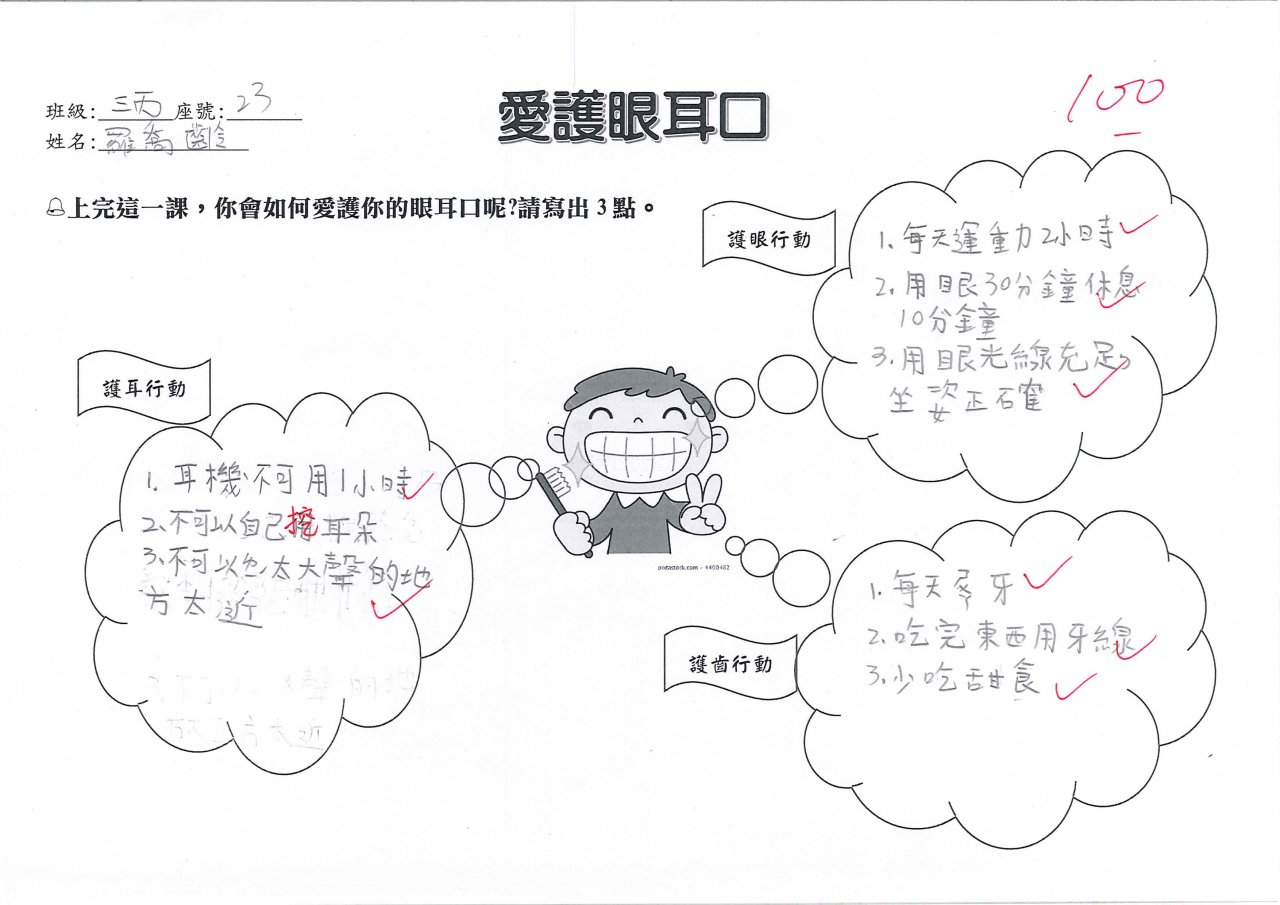 愛護眼耳口
100
班級: 三丙 座號: 23
姓名: 羅喬齡
上完這一課，你會如何愛護你的眼耳口呢?請寫出3點。
護眼行動
1. 每天運動2小時
2. 用眼30分鐘休息
10分鐘
3. 用眼光線充足,
坐姿正確
護耳行動
1. 耳機不可用1小時
2. 不可以自己挖耳朵
3. 不可以太大聲的地
方太近
pixtastock.com - 4490482
護齒行動
1. 每天牙
2. 吃完東西用牙線
3. 少吃甜食